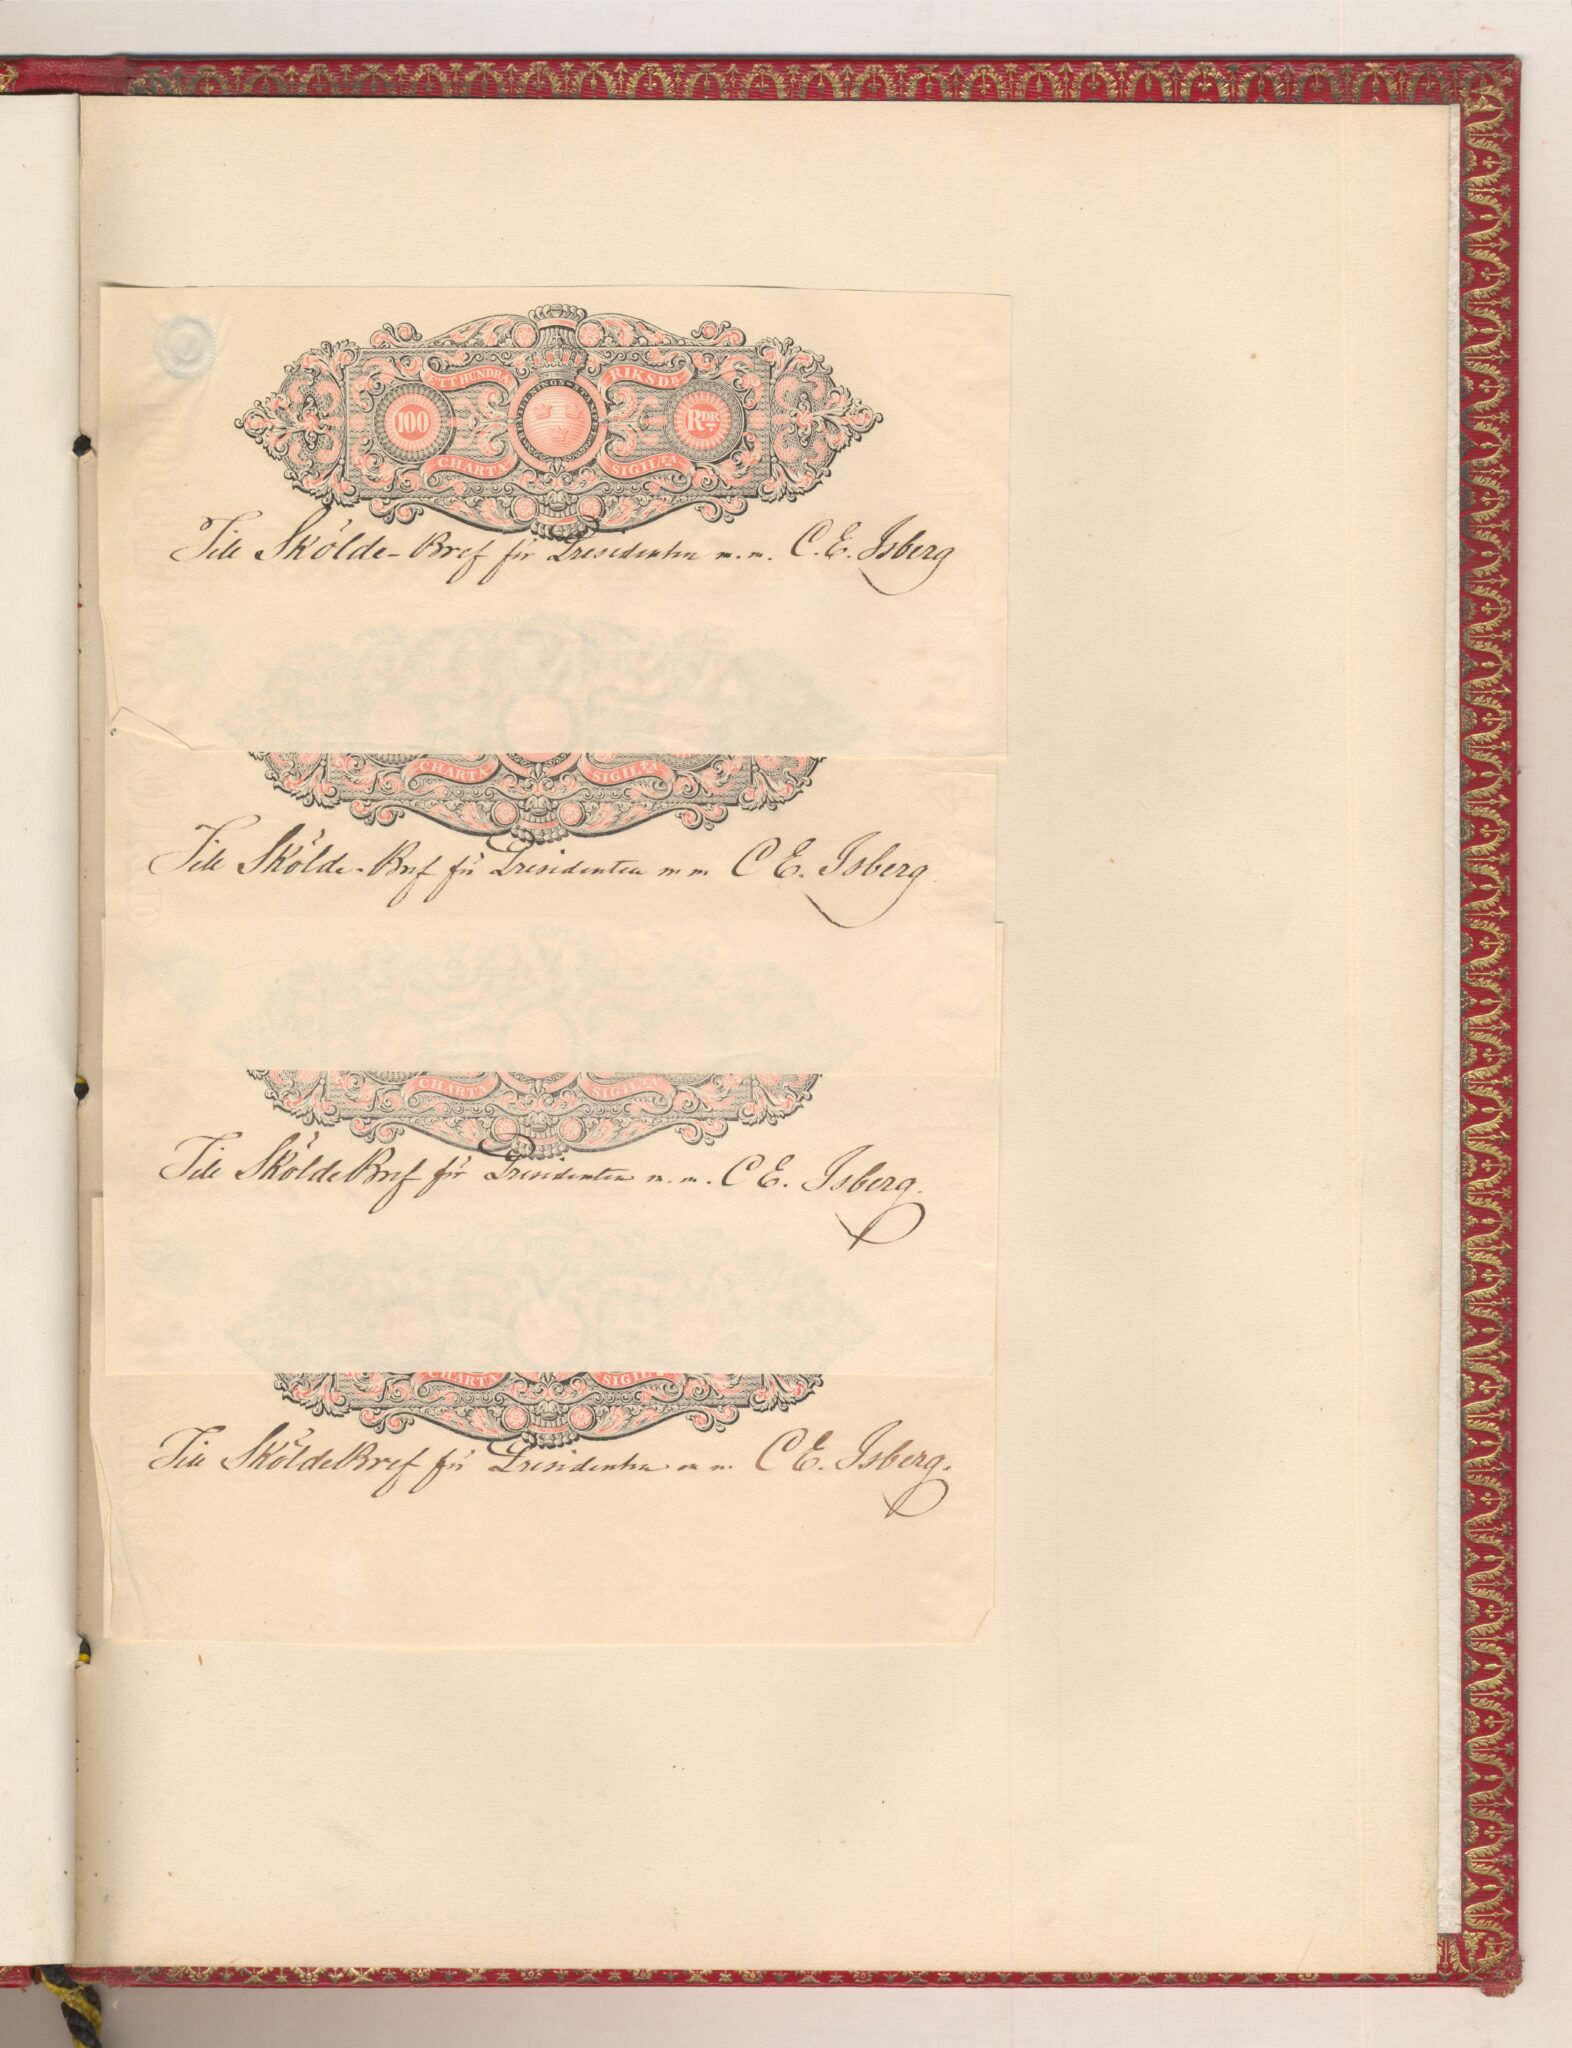 ETT HUNDRA RIKSDR
100 RDR
CHARTA SIGILTA
Till Skölde-Bref för Presidenten m. m. C. E. Isberg
CHARTA SIGILTA
Till Skölde-Bref för Presidenten m m. C E. Isberg
CHARTA SIGILTA
Till SköldeBref för Presidenten m. m. C E. Isberg.
CHARTA SIGILTA
Till SköldeBref för Presidenten m m. C E. Isberg.